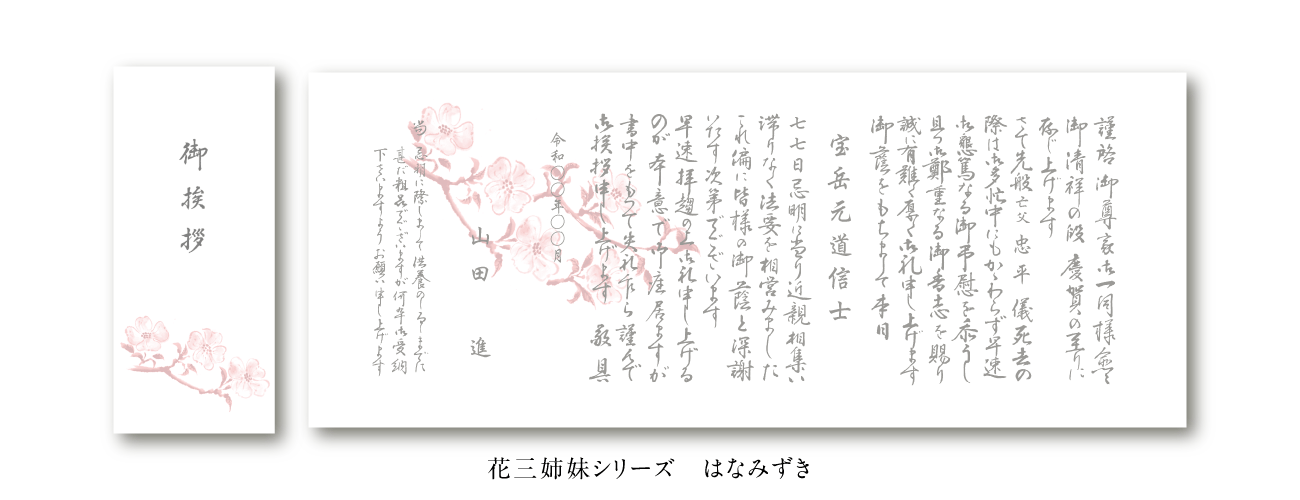 御挨拶
謹啓 御尊家御一同様愈々
御清祥の段 慶賀の至りに
存じ上げます
さて先般亡父 忠平 儀死去の
際は御多忙中にもかゝわらず早速
御懇篤なる御弔慰を忝うし
且つ御鄭重なる御香志を賜り
誠に有難く厚く御礼申し上げます
御蔭をもちまして本日
宝岳元道信士
七七日忌明に当り近親相集い
滞りなく法要を相営みました
これ偏に皆様の御蔭と深謝
いたす次第でございます
早速拝趨の上御礼申し上げる
のが本意で御座居ますが
書中をもって失礼乍ら謹んで
御挨拶申し上げます 敬具
令和〇〇年〇〇月
山田 進
尚 忌明に際しまして供養のしるしまでに
甚だ粗品でございますが何卒御受納
下さいますようお願い申し上げます
花三姉妹シリーズ はなみずき